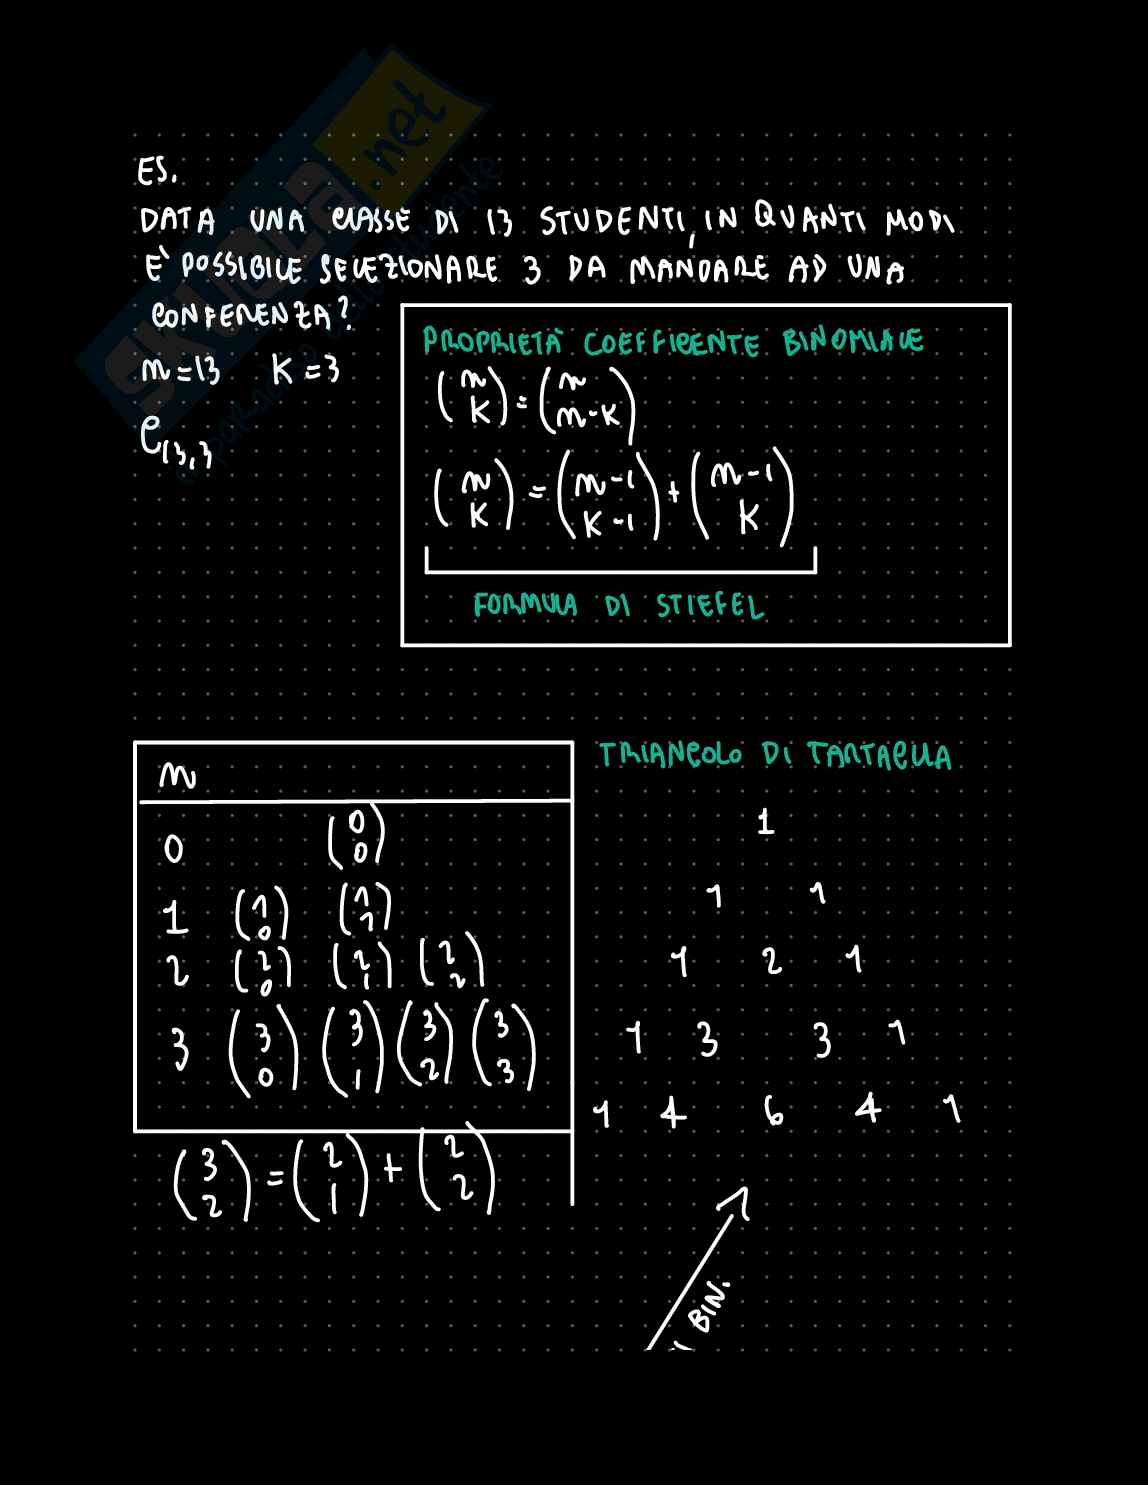 ES.
DATA UNA CLASSE DI 13 STUDENTI, IN QUANTI MODI
È POSSIBILE SELEZIONARE 3 DA MANDARE AD UNA
CONFERENZA?
n=13 K=3
C13,3
PROPRIETÀ COEFFICENTE BINOMIALE
(n K) = (n n-K)
(n K) = (n-1 K-1) + (n-1 K)
FORMULA DI STIEFEL
n
0 (0 0)
1 (1 0) (1 1)
2 (2 0) (2 1) (2 2)
3 (3 0) (3 1) (3 2) (3 3)
(3 2) = (2 1) + (2 2)
TRIANGOLO DI TARTAGLIA
1
1 1
1 2 1
1 3 3 1
1 4 6 4 1
BIN.
SKUOLA.net